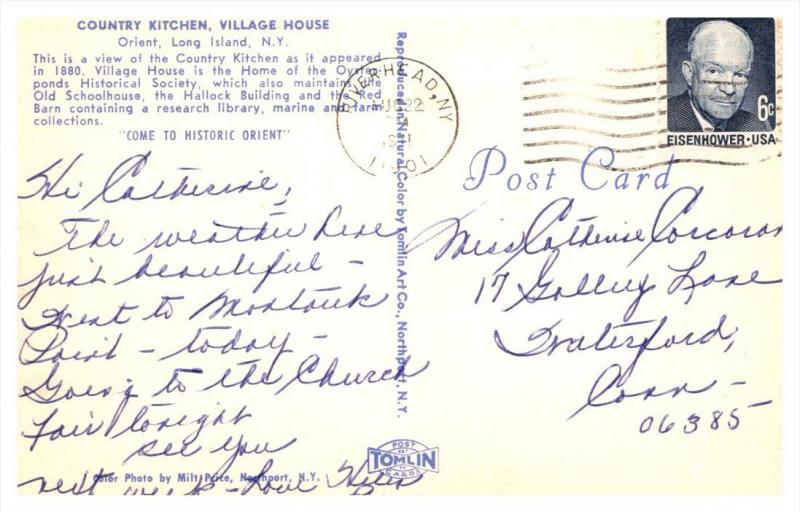 COUNTRY KITCHEN, VILLAGE HOUSE
Orient, Long Island, N.Y.
This is a view of the Country Kitchen as it appeared
in 1880. Village House is the Home of the Oyster-
ponds Historical Society, which also maintains the
Old Schoolhouse, the Hallock Building and the Red
Barn containing a research library, marine and farm
collections.
"COME TO HISTORIC ORIENT"
Hi Catherine,
The weather here
just beautiful -
Went to Montauk
Point - today -
Going to the Church
Fair tonight
see you
next week - Love Helen
Color Photo by Milt Price, Northport, N.Y.
Reproduced in Natural Color by Tomlin Art Co., Northport, N.Y.
POST
TOMLIN
CARDS
RIVERHEAD, NY
AUG 22
11901
6c
EISENHOWER · USA
Post Card
Miss Catherine Corcoran
17 Lane
Waterford,
Conn -
06385